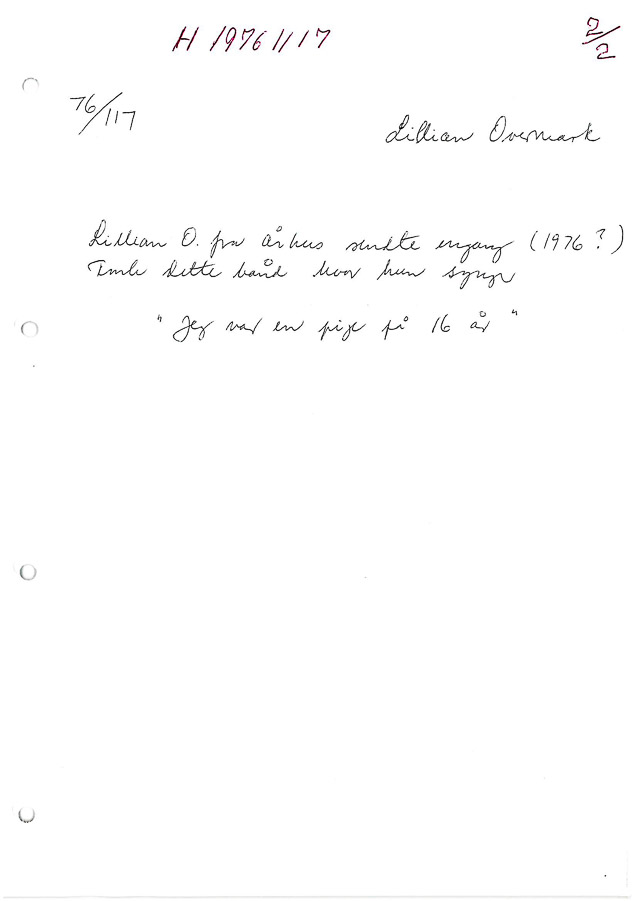 H 1976/117
2/2
76/117
Lillian Overmark
Lillian O. fra Århus sendte engang (1976?)
Emle dette bånd hvor hun synger
"Jeg var en pige på 16 år"